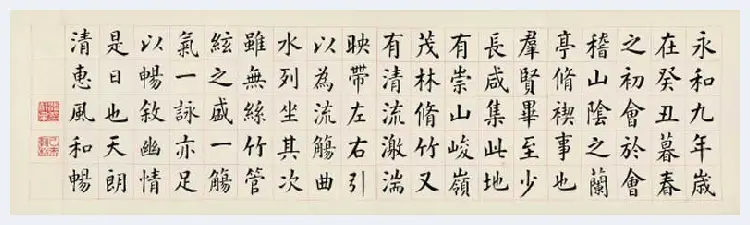 永和九年歲
在癸丑暮春
之初會於會
稽山陰之蘭
亭脩禊事也
羣賢畢至少
長咸集此地
有崇山峻嶺
茂林脩竹又
有清流激湍
映帶左右引
以為流觴曲
水列坐其次
雖無絲竹管
絃之盛一觴
氣一詠亦足
以暢敘幽情
是日也天朗
清惠風和暢